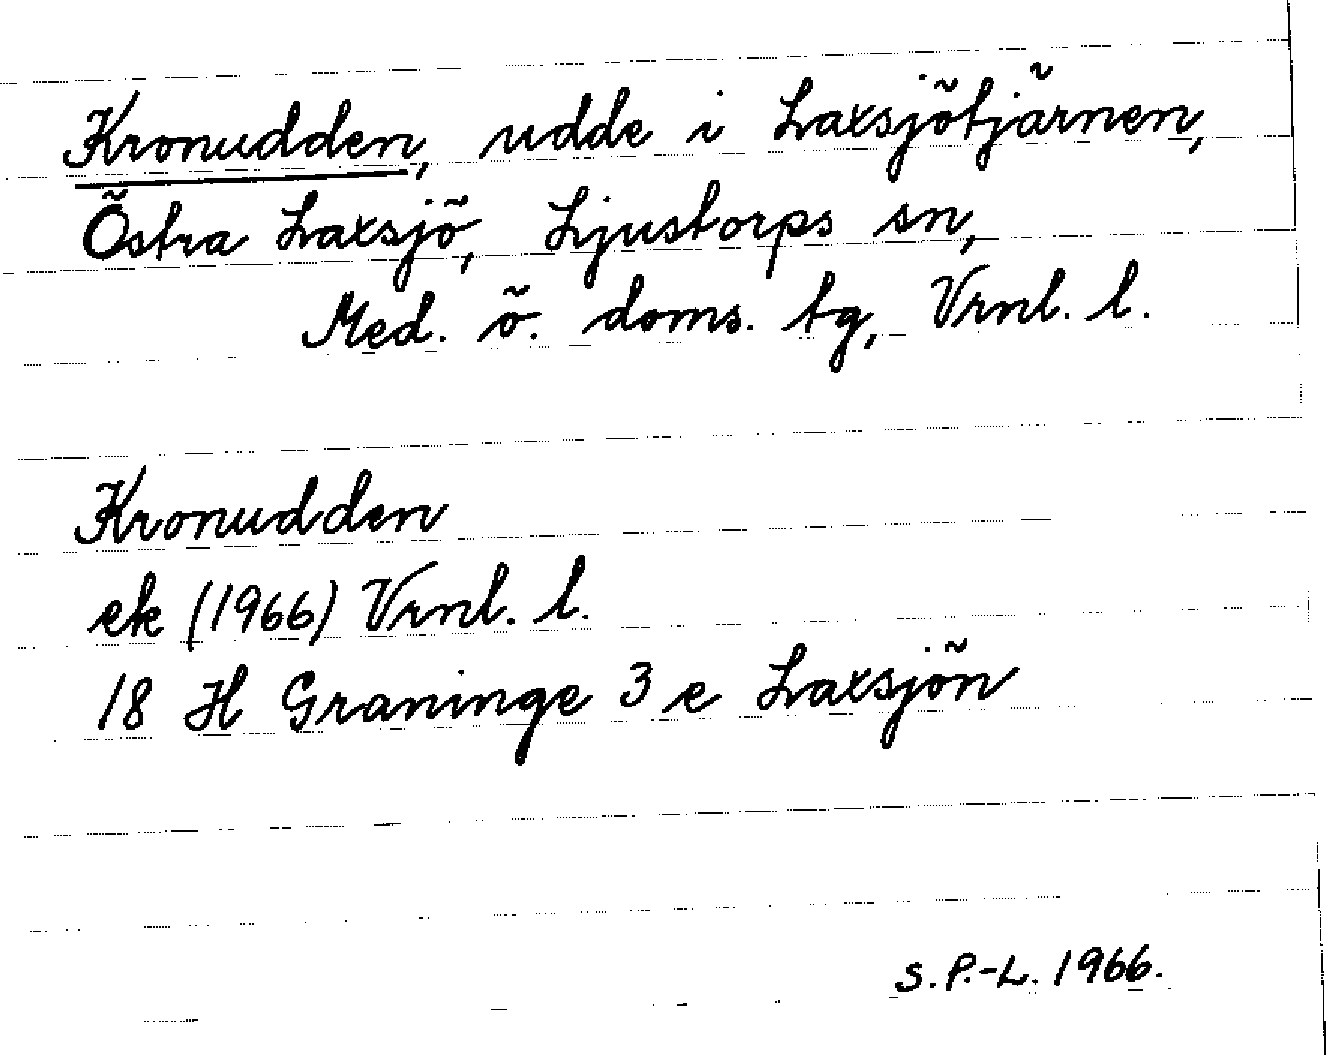 Kronudden, udde i Laxsjötjärnen,
Östra Laxsjö, Ljustorps sn,
Med. ö. doms. tg, Vrnl. l.
Kronudden
ek (1966) Vrnl. l.
18 H Graninge 3 e Laxsjön
S. P.-L. 1966.